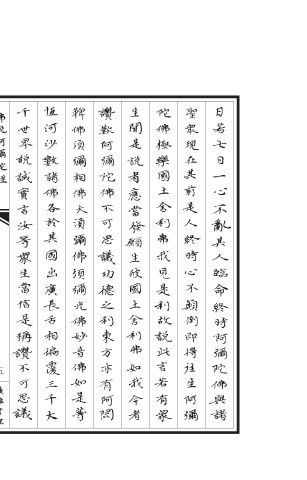 日若七日一心不亂其人臨命終時阿彌陀佛與諸
聖衆現在其前是人終時心不顛倒即得往生阿彌
陀佛極樂國土舍利弗我見是利故說此言若有衆
生聞是說者應當發願生彼國土舍利弗如我今者
讚歎阿彌陀佛不可思議功德之利東方亦有阿閦
鞞佛須彌相佛大須彌佛須彌光佛妙音佛如是等
恆河沙數諸佛各於其國出廣長舌相徧覆三千大
千世界說誠實言汝等衆生當信是稱讚不可思議
佛說阿彌陀經
五